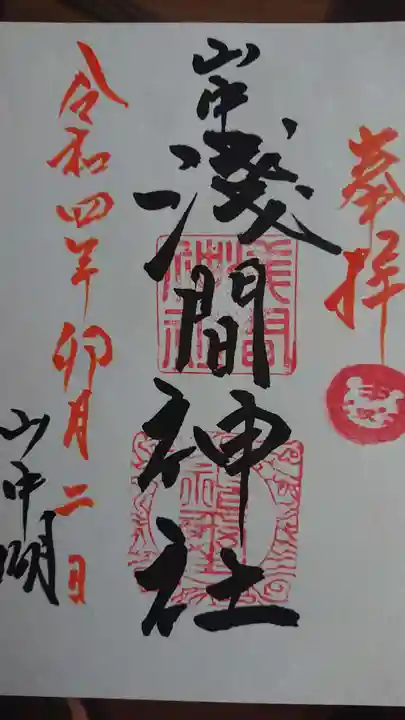 奉拝
山中
淺間神社
令和四年卯月二日
山中湖